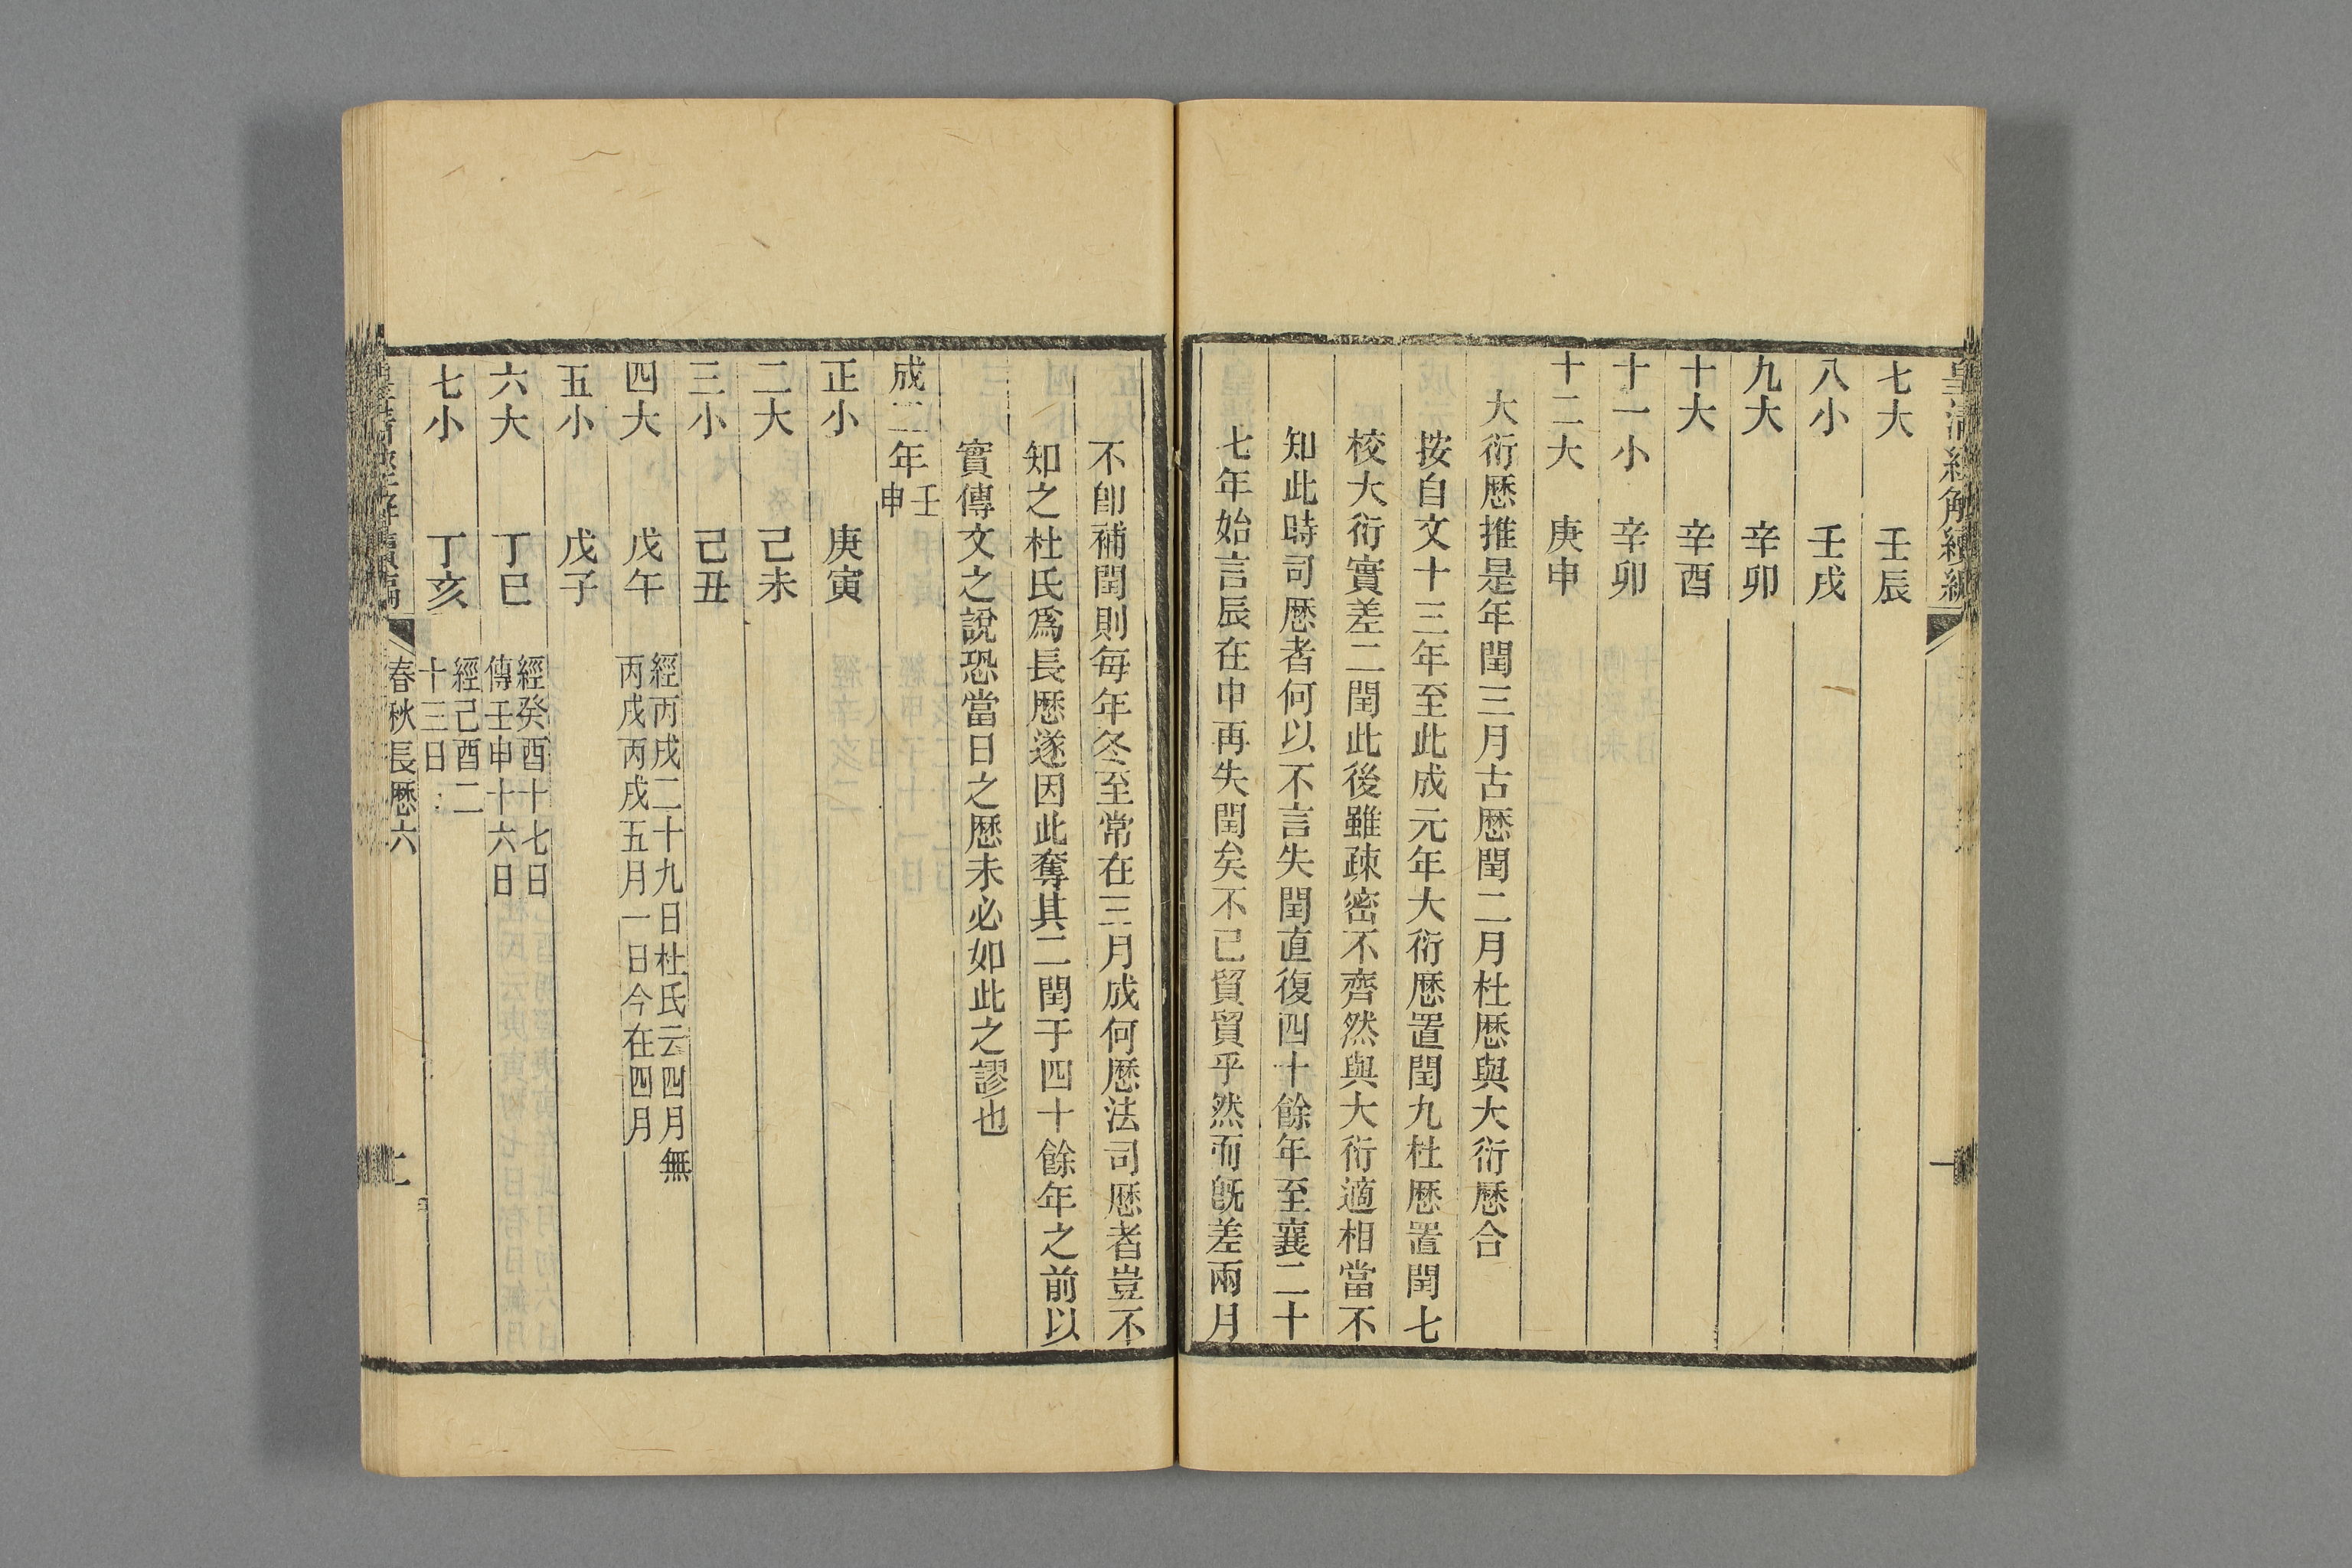 皇清經解續編
七大　壬辰
八小　壬戌
九大　辛卯
十大　辛酉
十一小　辛卯
十二大　庚申
大衍厯推是年閏三月古厯閏二月杜厯與大衍厯合
按自文十三年至此成元年大衍厯置閏九杜厯置閏七
校大衍實差二閏此後雖疎密不齊然與大衍適相當不
知此時司厯者何以不言失閏直復四十餘年至襄二十
七年始言辰在申再失閏矣不已貿貿乎然而旣差兩月
不卽補閏則每年冬至常在三月成何厯法司厯者豈不
知之杜氏爲長厯遂因此奪其二閏于四十餘年之前以
實傳文之說恐當日之厯未必如此之謬也
成二年壬申
正小　庚寅
二大　己未
三小　己丑
四大　戊午　經丙戌二十九日杜氏云四月無
丙戌丙戌五月一日今在四月
五小　戊子
六大　丁巳　經癸酉十七日
傳壬申十六日
七小　丁亥　經己酉二
十三日
皇清經解續編
春秋長厯六